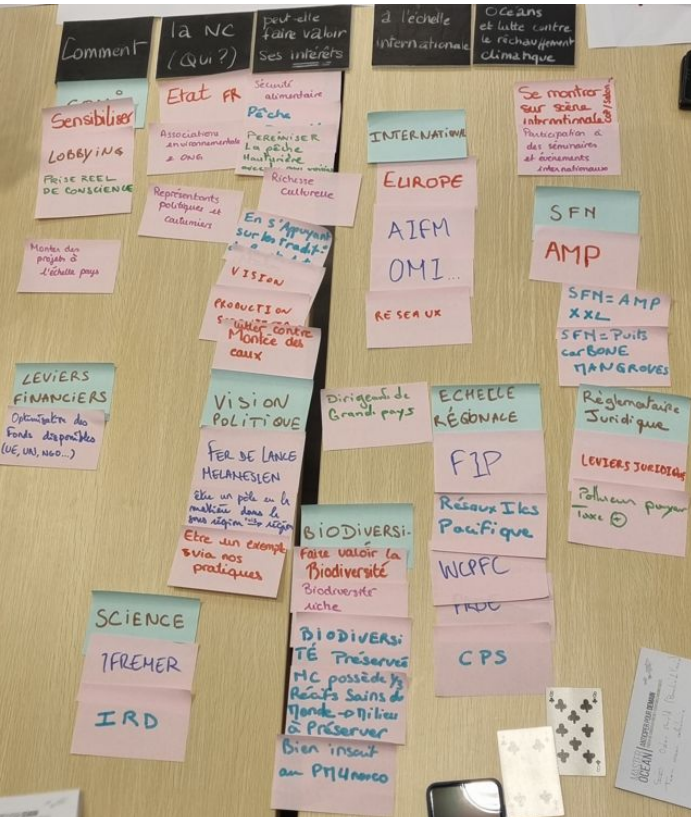 Comment
la NC
(Qui?)
peut-elle
faire valoir
ses intérêts
à l'échelle
internationale
Océans
et lutte contre
le réchauffement
climatique
Sensibiliser
LOBBYING
PRISE REEL
DE CONSCIENCE
Monter des
projets à
l'échelle pays
LEVIERS
FINANCIERS
Optimisation des
Fonds disponibles
(UE, UN, NGO...)
SCIENCE
IFREMER
IRD
Etat FR
Associations
environnementale
& ONG
Représentants
politiques et
coutumiers
Sécurité
alimentaire
Pêche
PERENISER
La pêche
Hauturière
Richesse
Culturelle
En s'Appuyant
sur les Tradit-
VISION
PRODUCTION
Lutter contre
Montée des
eaux
VISION
POLITIQUE
FER DE LANCE
MELANESIEN
être un pôle en la
matière dans la
sous région
région
Etre un exemple
via nos
pratiques
BIODIVERSI-
Faire valoir la
Biodiversité
Biodiversité
riche
BIODIVERSI
TÉ Préservée
NC possède 1/3
Récifs Sains du
Monde → Milieu
à Préserver
Bien inscrit
au PM Unesco
INTERNATIONAL
EUROPE
AIFM
OMI...
RESEAUX
Dirigeants de
Grands pays
ECHELLE
RÉGIONALE
FIP
Réseaux Iles
Pacifique
WCPFC
PROE
CPS
Se montrer
sur scène
internationale
COP/Salon
Participation à
des séminaires
et évènements
internationaux
SFN
AMP
SFN = AMP
XXL
SFN = Puits
carBONE
MANGROVES
Règlementaire
Juridique
LEVIERS JURIDIQUES
Pollueur payeur
Taxe +
OCÉAN